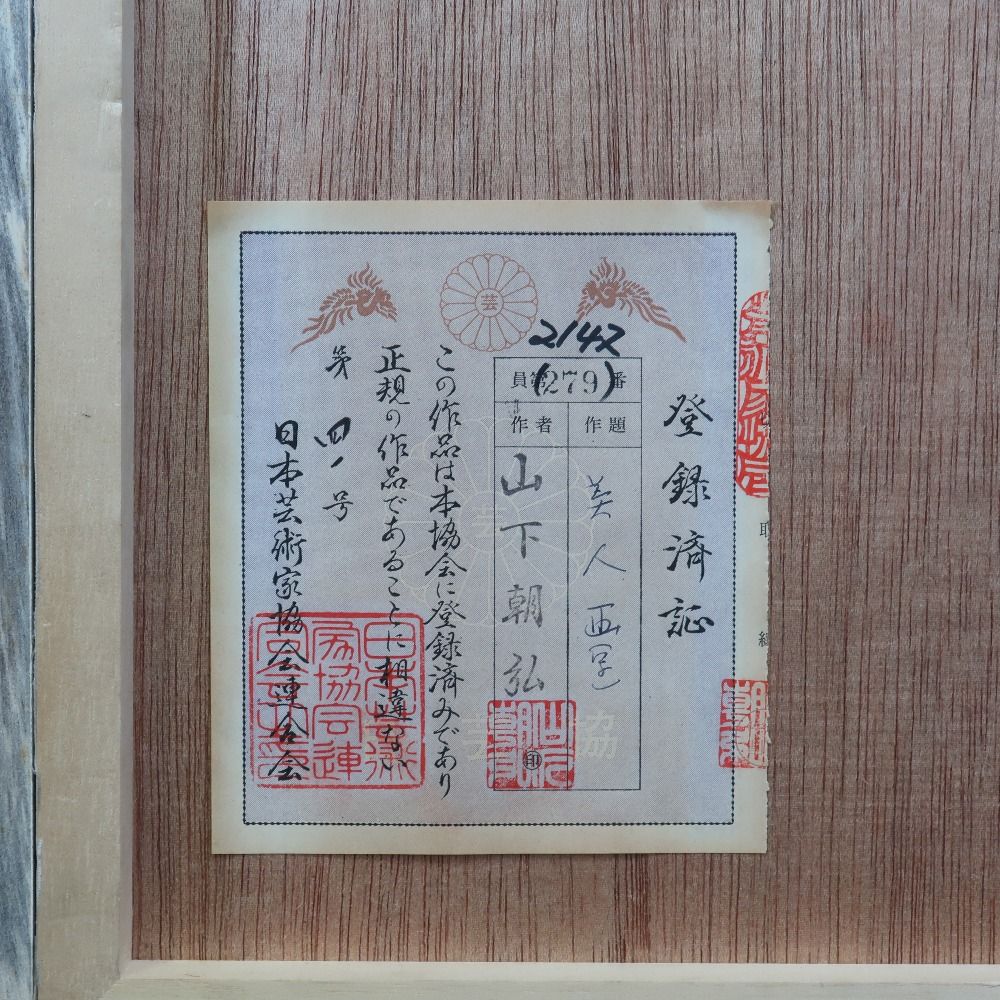 芸
登録済証
2142
員第(279)番
作題
美人画
作者
山下朝弘
この作品は本協会に登録済みであり
正規の作品であることに相違ない
第四一号
日本芸術家協会連合会
芸協
㊞